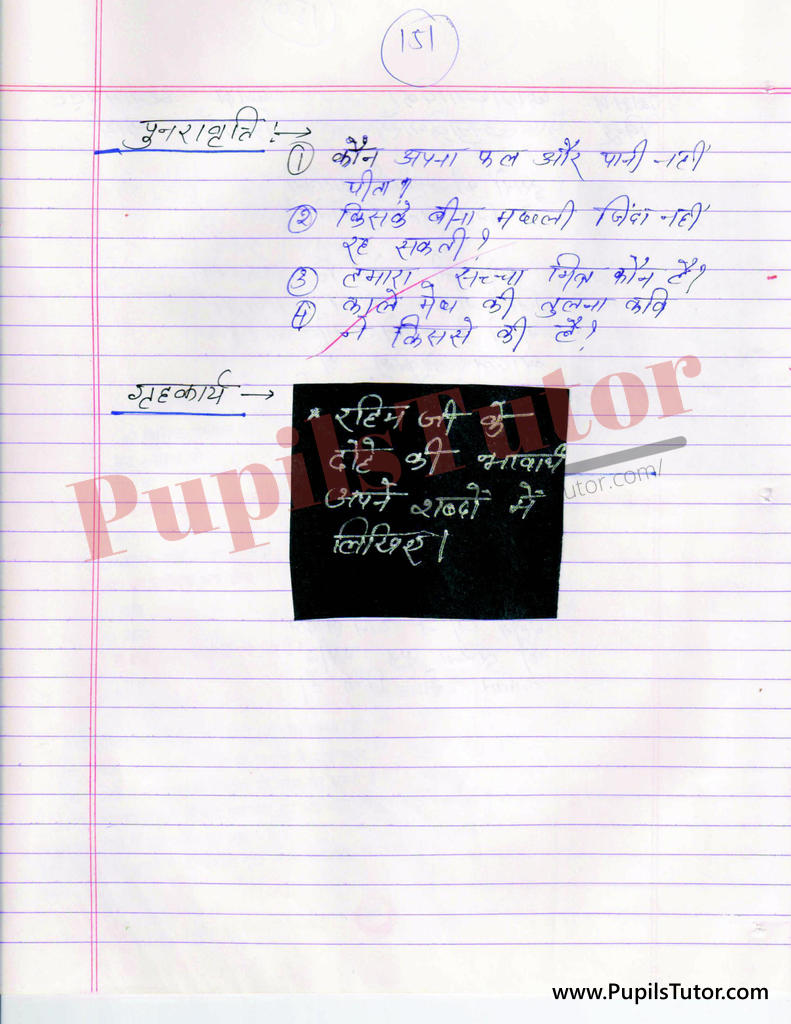 151
पुनरावृत्ति :→
① कौन अपना फल और पानी नहीं
पीता?
② किसके बीना मछली जिंदा नहीं
रह सकती?
③ हमारा सच्चा मित्र कौन है?
④ काले मेघ की तुलना कवि
ने किससे की है?
गृहकार्य →
* रहिम जी के
दोहे की भावार्थ
अपने शब्दों में
लिखिए।
PupilsTutor
utor.com/
www.PupilsTutor.com